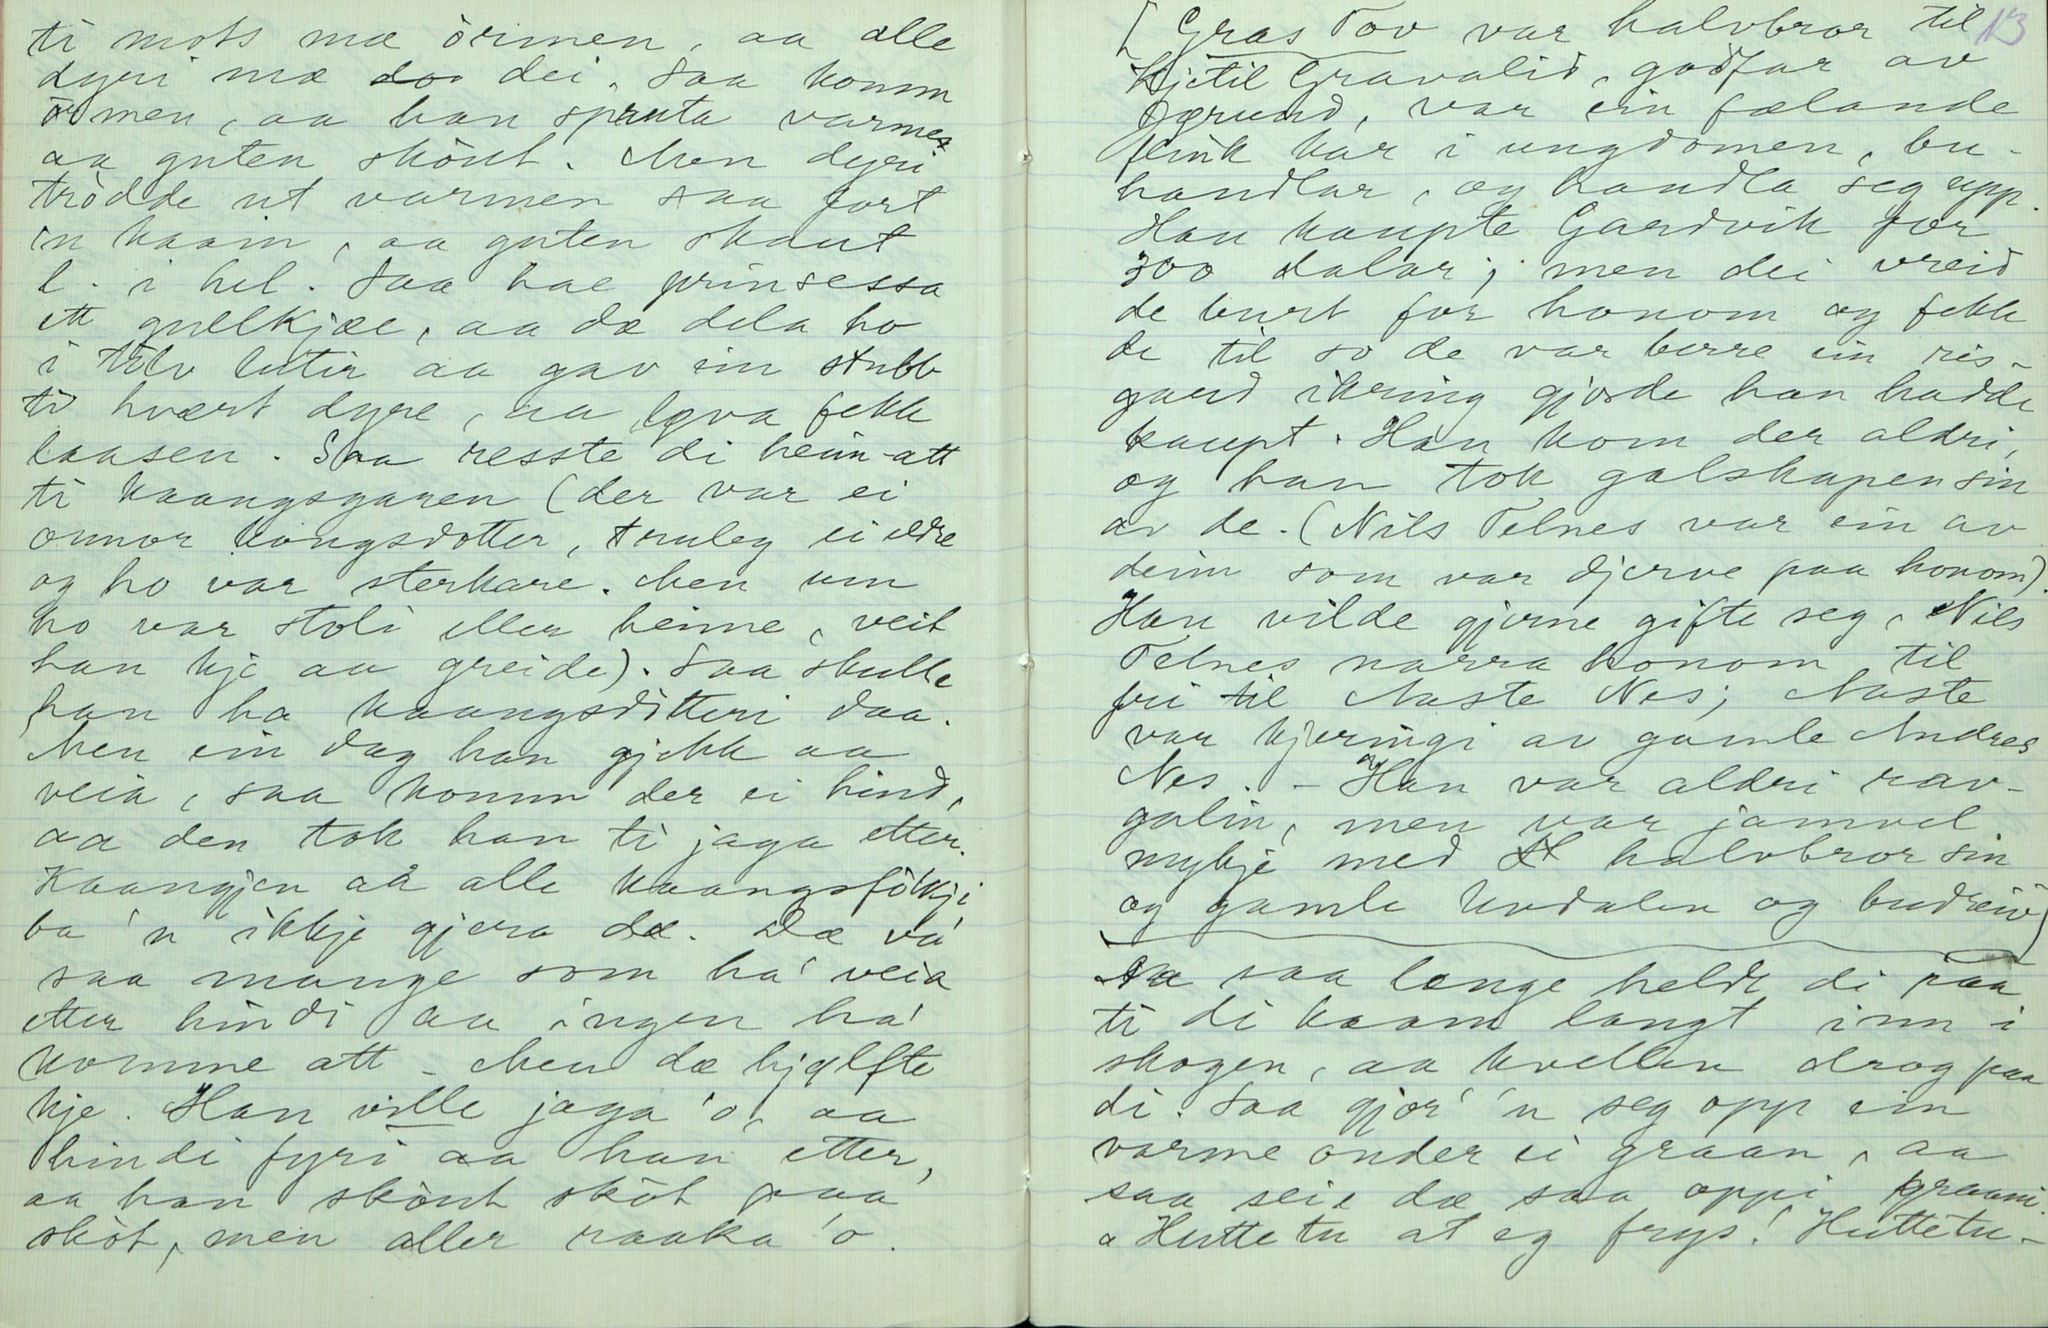 ti mots mæ örmen, aa alle
dyri mæ dei. Saa komm
örmen, aa han spruta varme,
aa guten skönt. Men dyri
trödde ut varmen saa fort
'n kaam, aa guten skaut
l. i hel. Saa hae prinsessa
ett gullkjæe, aa dæ dela ho
i tolv lutir aa gav ein stubb
ti hvært dyre, aa løva fekk
laasen. Saa resste di heim-att
ti kaangsgaren (der var ei
onnor kongsdotter, truleg ei eldre
og ho var sterkare. Men um
ho var stoli eller heime, veit
han kje aa greide). Saa skulle
han ha kaangsditteri daa.
Men ein dag han gjekk aa
veia, saa komm der ei hind,
aa den tok han ti jaga etter.
Kaangjen aå alle kaangsfölkji
ba 'n ikkje gjera dæ. Dæ va'
saa mange som ha' veia
etter hindi aa ingen ha'
komme att - Men dæ hjølfte
kje. Han ville jaga 'o, aa
hindi fyri aa han etter,
aa han skönt sköt paa
sköt, men aller raaka 'o.
13
[Gras Tov var halvbror til
Kjetil Gravalid, godfar av
Særund, var ein fælande
flink kar i ungdomen, bu-
handlar, og handla seg upp.
Han kaupte Gardvik for
300 dalar; men dei vreid
de burt for honom og fekk
de til so de var berre ein ris-
gard ikring gjorde han hadde
kaupt. Han kom der aldri,
og han tok galskapen sin
av de. (Nils Telnes var ein av
deim som var djerve paa honom).
Han vilde gjerne gifte seg, Nils
Telnes narra honom til
fri til Naste Nes; Naste
var kjeringi av gamle Andres
Nes. - Han var aldri rav-
galin, men var jamvel
mykje med halvbror sin
og gamle Uvdalen og
saa længe heldt di paa
ti di kaam langt inn i
skogen, aa kvellen drog paa
di. Saa gjor' 'n seg opp ein
varme onder ei graan, aa
saa seie dæ saa oppi graani.
"Huttetu at eg frys! Huttetu-